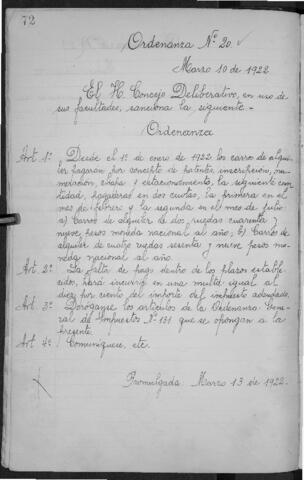 72
Ordenanza Nº 20.
Marzo 10 de 1922
El H. Concejo Deliberativo, en uso de
sus facultades, sanciona la siguiente.-
Ordenanza
Art. 1º Desde el 1º de enero de 1922, los carros de alqui-
ler pagaran por concepto de patente, inscripcion, nu-
meracion, chapa y estacionamiento, la siguiente can-
tidad, pagaderas en dos cuotas, la primera en el
mes de febrero y la segunda en el mes de julio:
a) Carros de alquiler de dos ruedas cuarenta y
nueve pesos moneda nacional al año; b) Carros de
alquiler de cuatro ruedas sesenta y nueve pesos mo-
neda nacional al año.
Art. 2º La falta de pago dentro de los plazos estable-
cidos, hará incurrir en una multa igual al
diez por ciento del importe del impuesto adeudado.
Art. 3º Deroganse los articulos de la Ordenanza Gene-
ral de Impuestos Nº 131 que se opongan a la
presente.
Art. 4º Comuniquese, etc.
Promulgada: Marzo 13 de 1922.